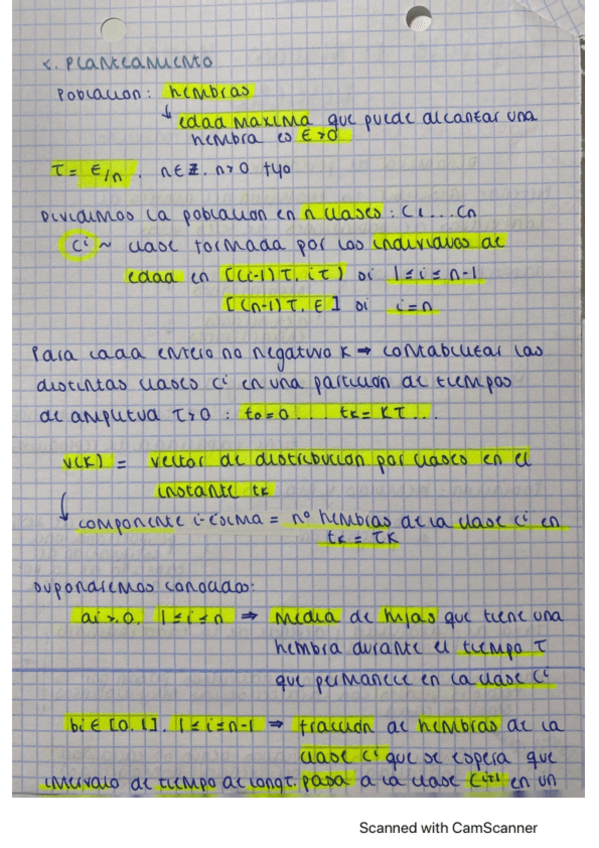 1. PLANTEAMIENTO
POBLACIÓN: hembras
↳ edad máxima que puede alcanzar una
hembra es E>0
τ = E/n, n∈ℤ, n>0 fijo
Dividimos la población en n clases: C1...Cn
Ci ~ clase formada por los individuos de
edad en [(i-1)τ, iτ) si 1≤i≤n-1
[(n-1)τ, E] si i=n
Para cada entero no negativo K → contabilizar las
distintas clases Ci en una partición de tiempos
de amplitud τ>0: t0=0... tk=Kτ...
v(K) = vector de distribución por clases en el
instante tk
↳ componente i-ésima = nº hembras de la clase Ci en
tk = τK
Supondremos conocidos:
ai≥0, 1≤i≤n ⇒ media de hijas que tiene una
hembra durante el tiempo τ
que permanece en la clase Ci
bi∈[0,1], 1≤i≤n-1 ⇒ fracción de hembras de la
clase Ci que se espera que
intervalo de tiempo de long τ. pasa a la clase Ci+1 en un
Scanned with CamScanner